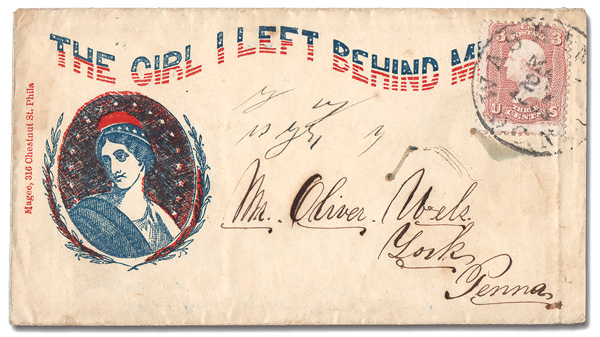 THE GIRL I LEFT BEHIND ME
3 3
U THREE CENTS S
Magee, 316 Chestnut St. Phila
Mr. Oliver
York
Penna